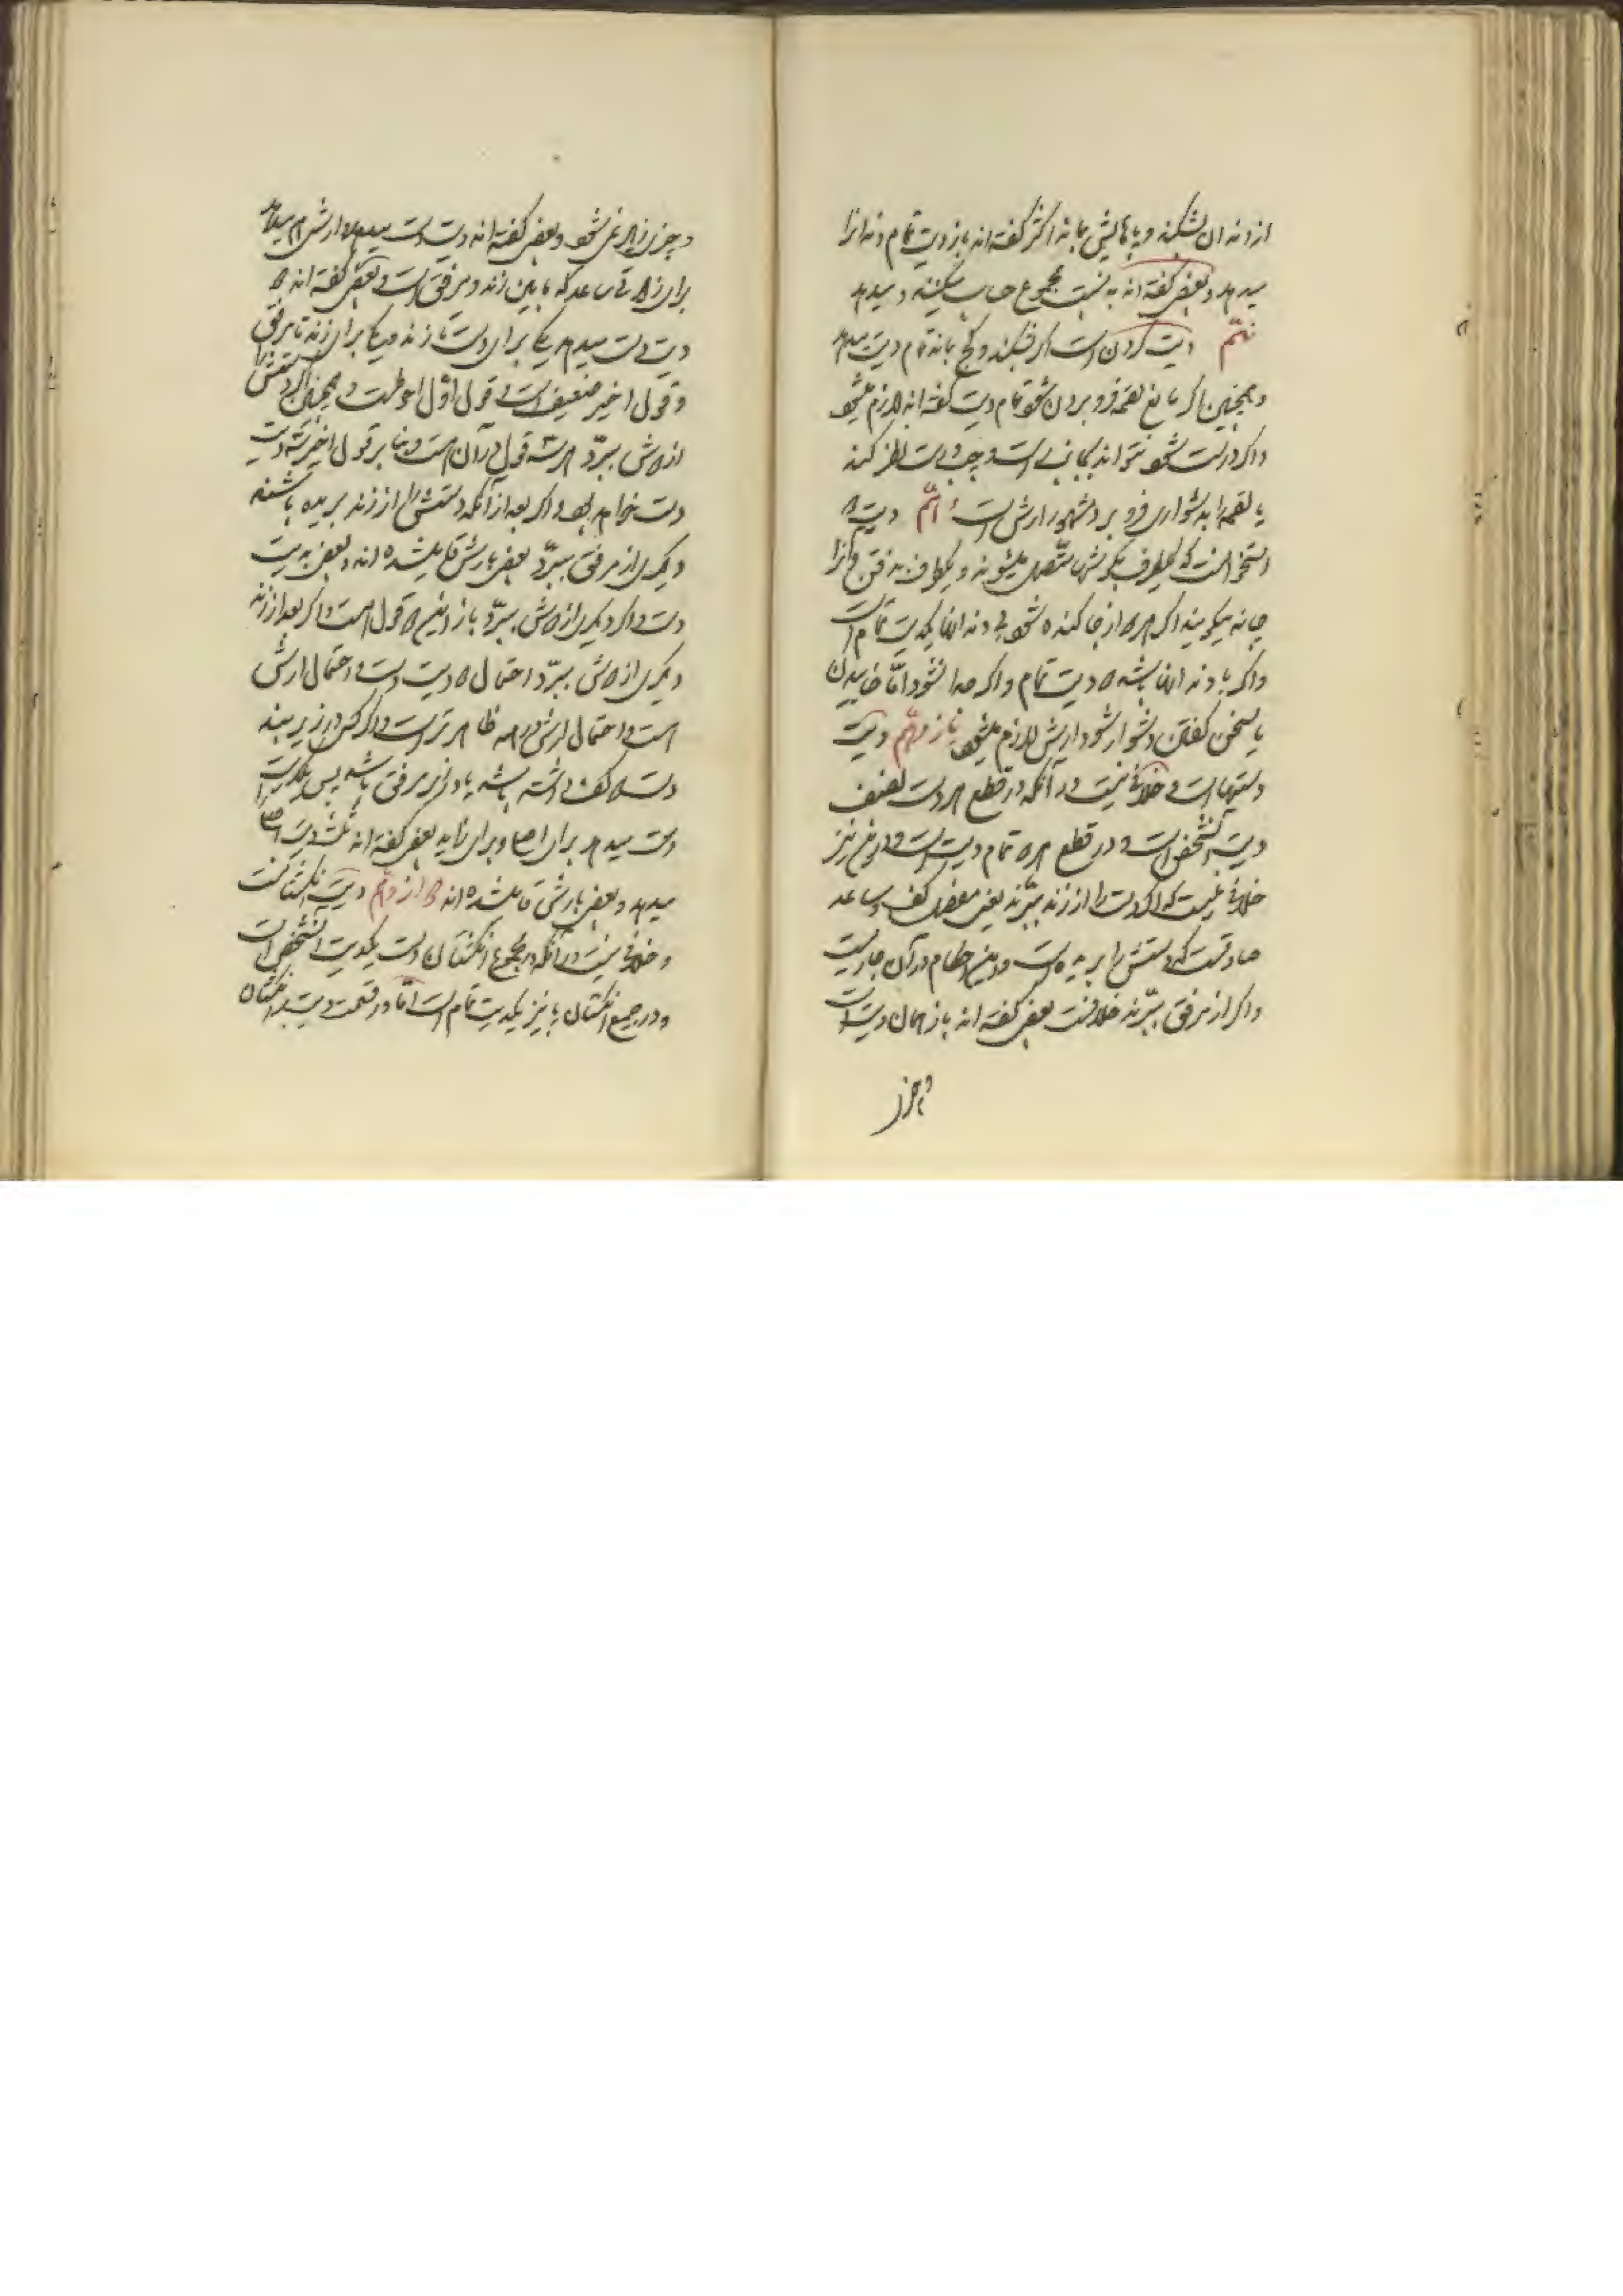 از دندان بشکند و پاهایش بماند اکثر گفته‌اند باز دیت تمام دندان را
میدهد و بعضی گفته‌اند به نسبت مجموع حساب میکنند و میدهد
نهم دیت گردن است اگر بشکند و کج بماند تمام دیت میدهد
و همچنین اگر مانع لقمه فرو بردن شود تمام دیت گفته‌اند لازم میشود
و اگر درست شود نتواند بجانبی است و چپ و راست نظر کند
یا لقمه را بدشواری فرو برد مشهور ارش است دهم دیت دو
استخوانست که یکطرف بگوشها متصل میشوند و یکطرف بذقن و آن را
چانه میگویند اگر هر دو از جا کنده شود بی دندانها یکدیت تمام است
و اگر با دندانها باشد دو دیت تمام و اگر جدا نشود اما خاییدن
یا سخن گفتن دشوار شود ارش لازم میشود یازدهم دیت
دستهاست و خلافی نیست در آنکه در قطع هر دست نصف
دیت آنشخص است و در قطع هر دو تمام دیت است و در این نیز
خلافی نیست که اگر دست را از زند ببرند یعنی مفصل کف و ساعد
صادقست که دستش را بریده است و این احکام در آن جاریست
و اگر از مرفق ببرند خلافست بعضی گفته‌اند باز همان دیت است
و چیزی
و چیزی زیاد نمی‌شود و بعضی گفته‌اند دیت دست میدهد و ارش هم میدهد
برای زیادتی ساعد که ما بین زند و مرفق است و بعضی گفته‌اند دو
دیت دست میدهد یکی برای دست تا زند و یکی برای زند تا مرفق
و قول اخیر ضعیف است و قول اول احوطست و همچنین اگر دستش را
از دوش ببرد هر سه قول در آن هست و بنا بر قول اخیر سه دیت
دست خواهد بود و اگر بعد از آنکه دستش را از زند بریده باشند
دیگری از مرفق ببرد بعضی بارش قایل شده‌اند و بعضی بدیت
دست و اگر دیگری از دوش ببرد باز این دو قول هست و اگر بعد از زند
دیگری از دوش ببرد احتمال دو دیت دست و احتمال ارش
است و احتمال ارش در همه ظاهرتر است و اگر کسی در زیر بند
دست دو کف داشته باشد یا دو ذراع در مرفق باشد پس یکدیت
دست میدهد برای اصلی و برای زاید بعضی گفته‌اند ثلث دیت اصلی
میدهد و بعضی بارش قایل شده‌اند دوازدهم دیت انگشتانست
و خلافی نیست در آنکه در مجموع انگشتان دست یکدیت آنشخص است
و در جمیع انگشتان پا نیز یکدیت تمام است اما در قسمت دیت بر انگشتان